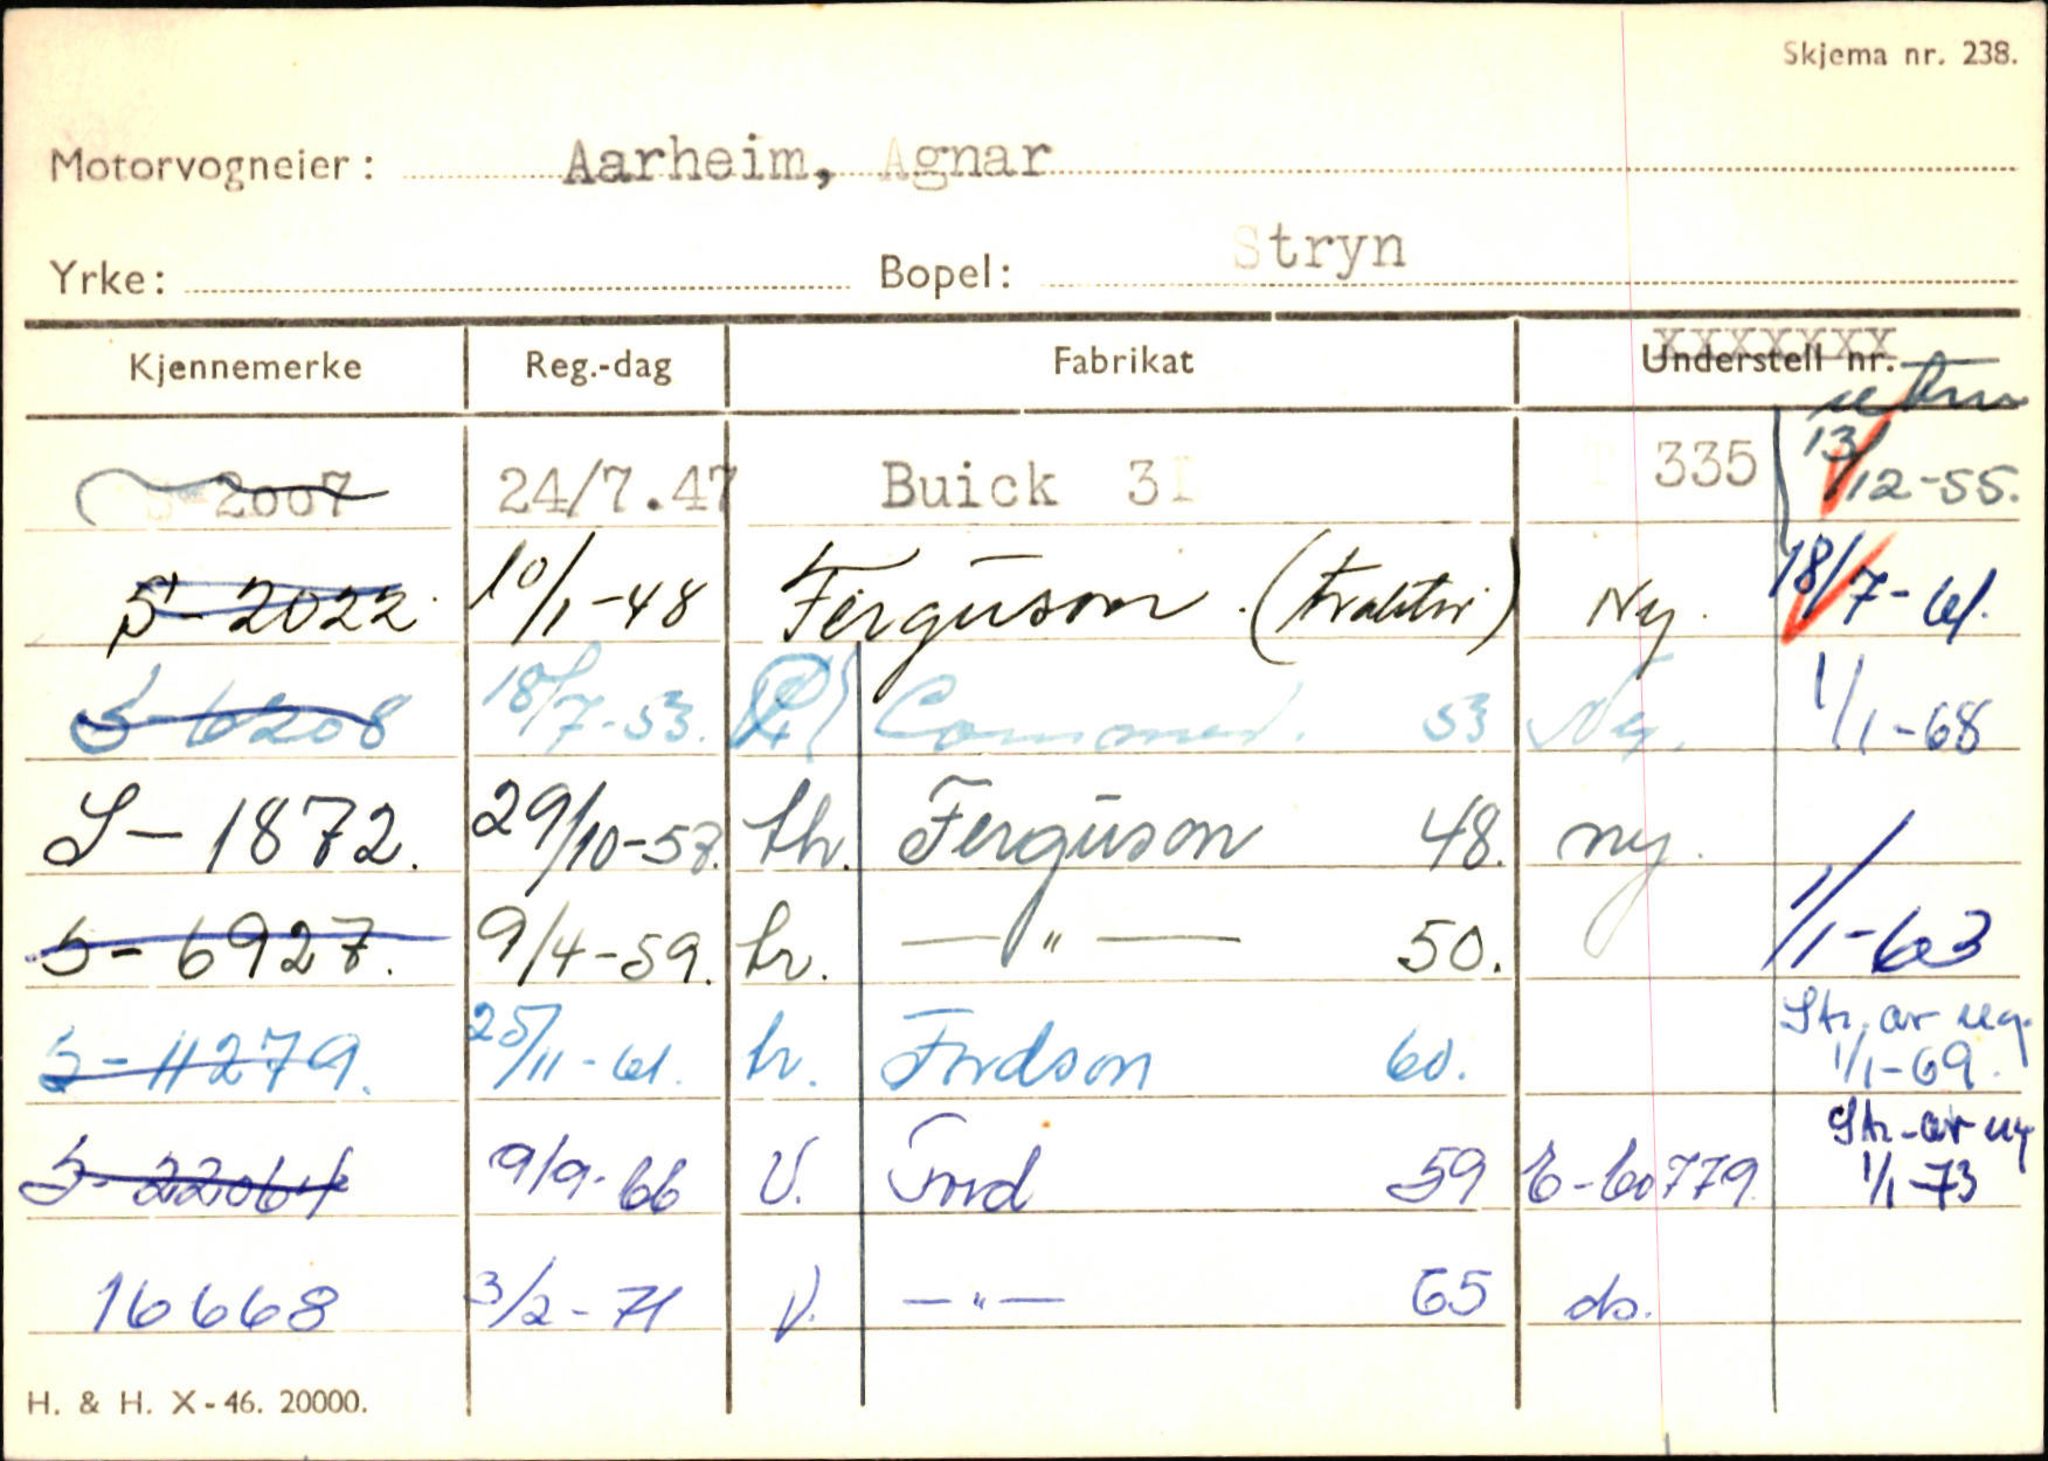 Skjema nr. 238.
Motorvogneier: Aarheim, Agnar
Yrke: Bopel: Stryn
Kjennemerke Reg.-dag Fabrikat Understell nr. XXXXXXX
S-2007 24/7.47 Buick 31 T 335 13/12-55.
S-2022. 10/1-48 Ferguson (traktor) Ny. 18/7-61.
S-6208 18/7-53. 53 Ny. 1/1-68
S-1872. 29/10-58. tr. Ferguson 48. ny.
S-6927. 9/4-59. tr. —"— 50. 1/1-63
S-11279. 25/11-61. tr. Fordson 60. Str. av reg. 1/1-69.
S-22064 9/9-66 V. Ford 59 E-60779 Str. av reg 1/1-73
16668 3/2-71 V. —"— 65 do.
H. & H. X-46. 20000.